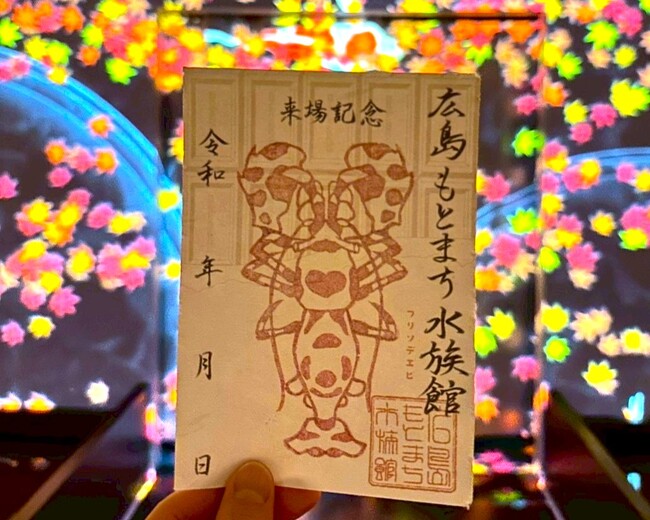 広島もとまち水族館
来場記念
フリソデエビ
令和 年 月 日
広島
もとまち
水族館